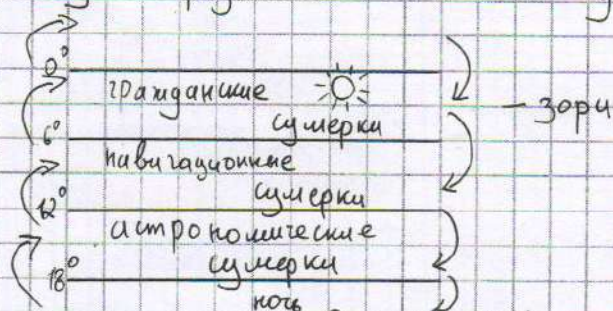 0°
гражданские
сумерки
- зори
6°
навигационные
сумерки
12°
астрономические
сумерки
18°
ночь